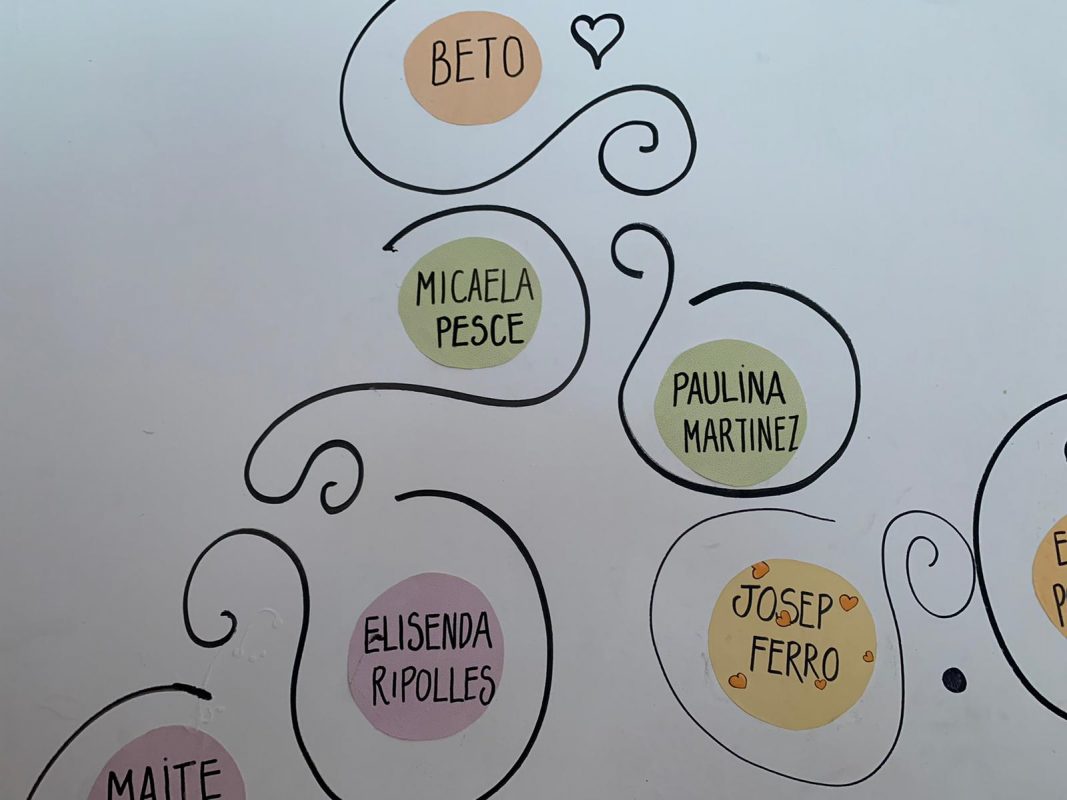 BETO
MICAELA
PESCE
PAULINA
MARTINEZ
JOSEP
FERRO
ELISENDA
RIPOLLES
MAITE